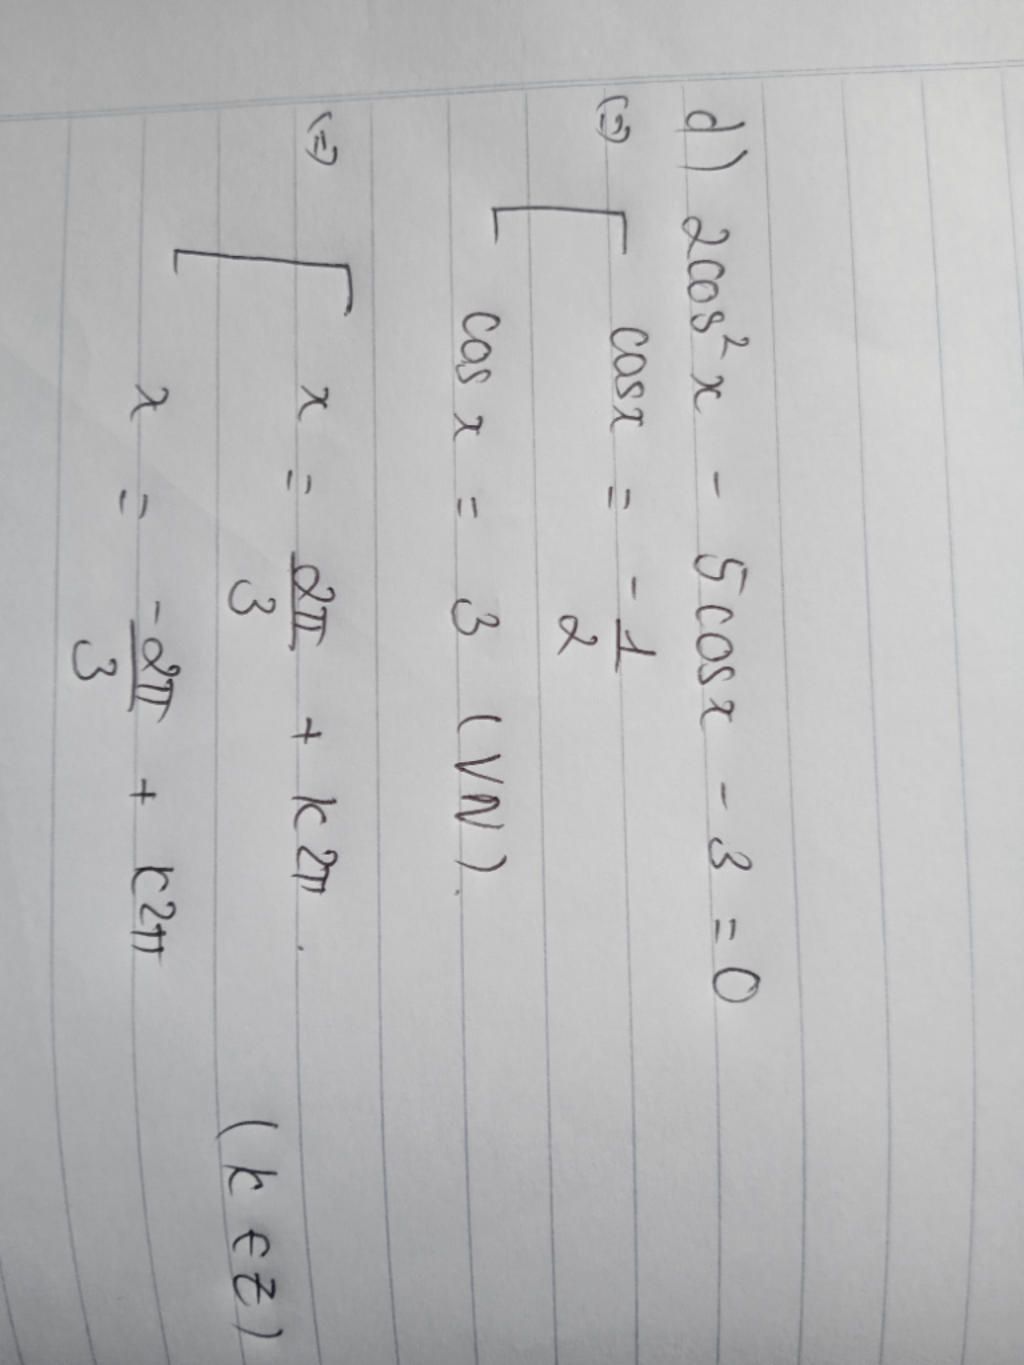 d) 2cos² x - 5cosx - 3 = 0
(=) [ cosx = -1/2
cos x = 3 (VN).
(=) [ x = 2π/3 + k2π.
x = -2π/3 + k2π
(k ∈ Z)